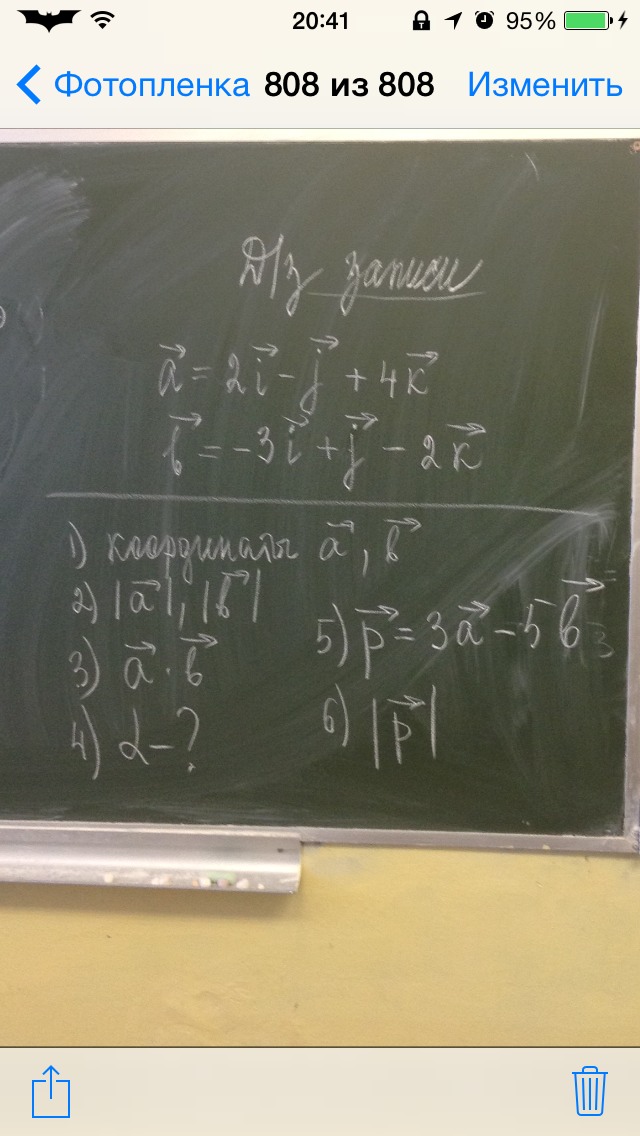 20:41 95%
Фотопленка 808 из 808 Изменить
Д/з записи
a⃗ = 2i⃗ - j⃗ + 4k⃗
b⃗ = -3i⃗ + j⃗ - 2k⃗
1) координаты a⃗, b⃗
2) |a⃗|, |b⃗|
3) a⃗ · b⃗
4) α - ?
5) p⃗ = 3a⃗ - 5b⃗
6) |p⃗|